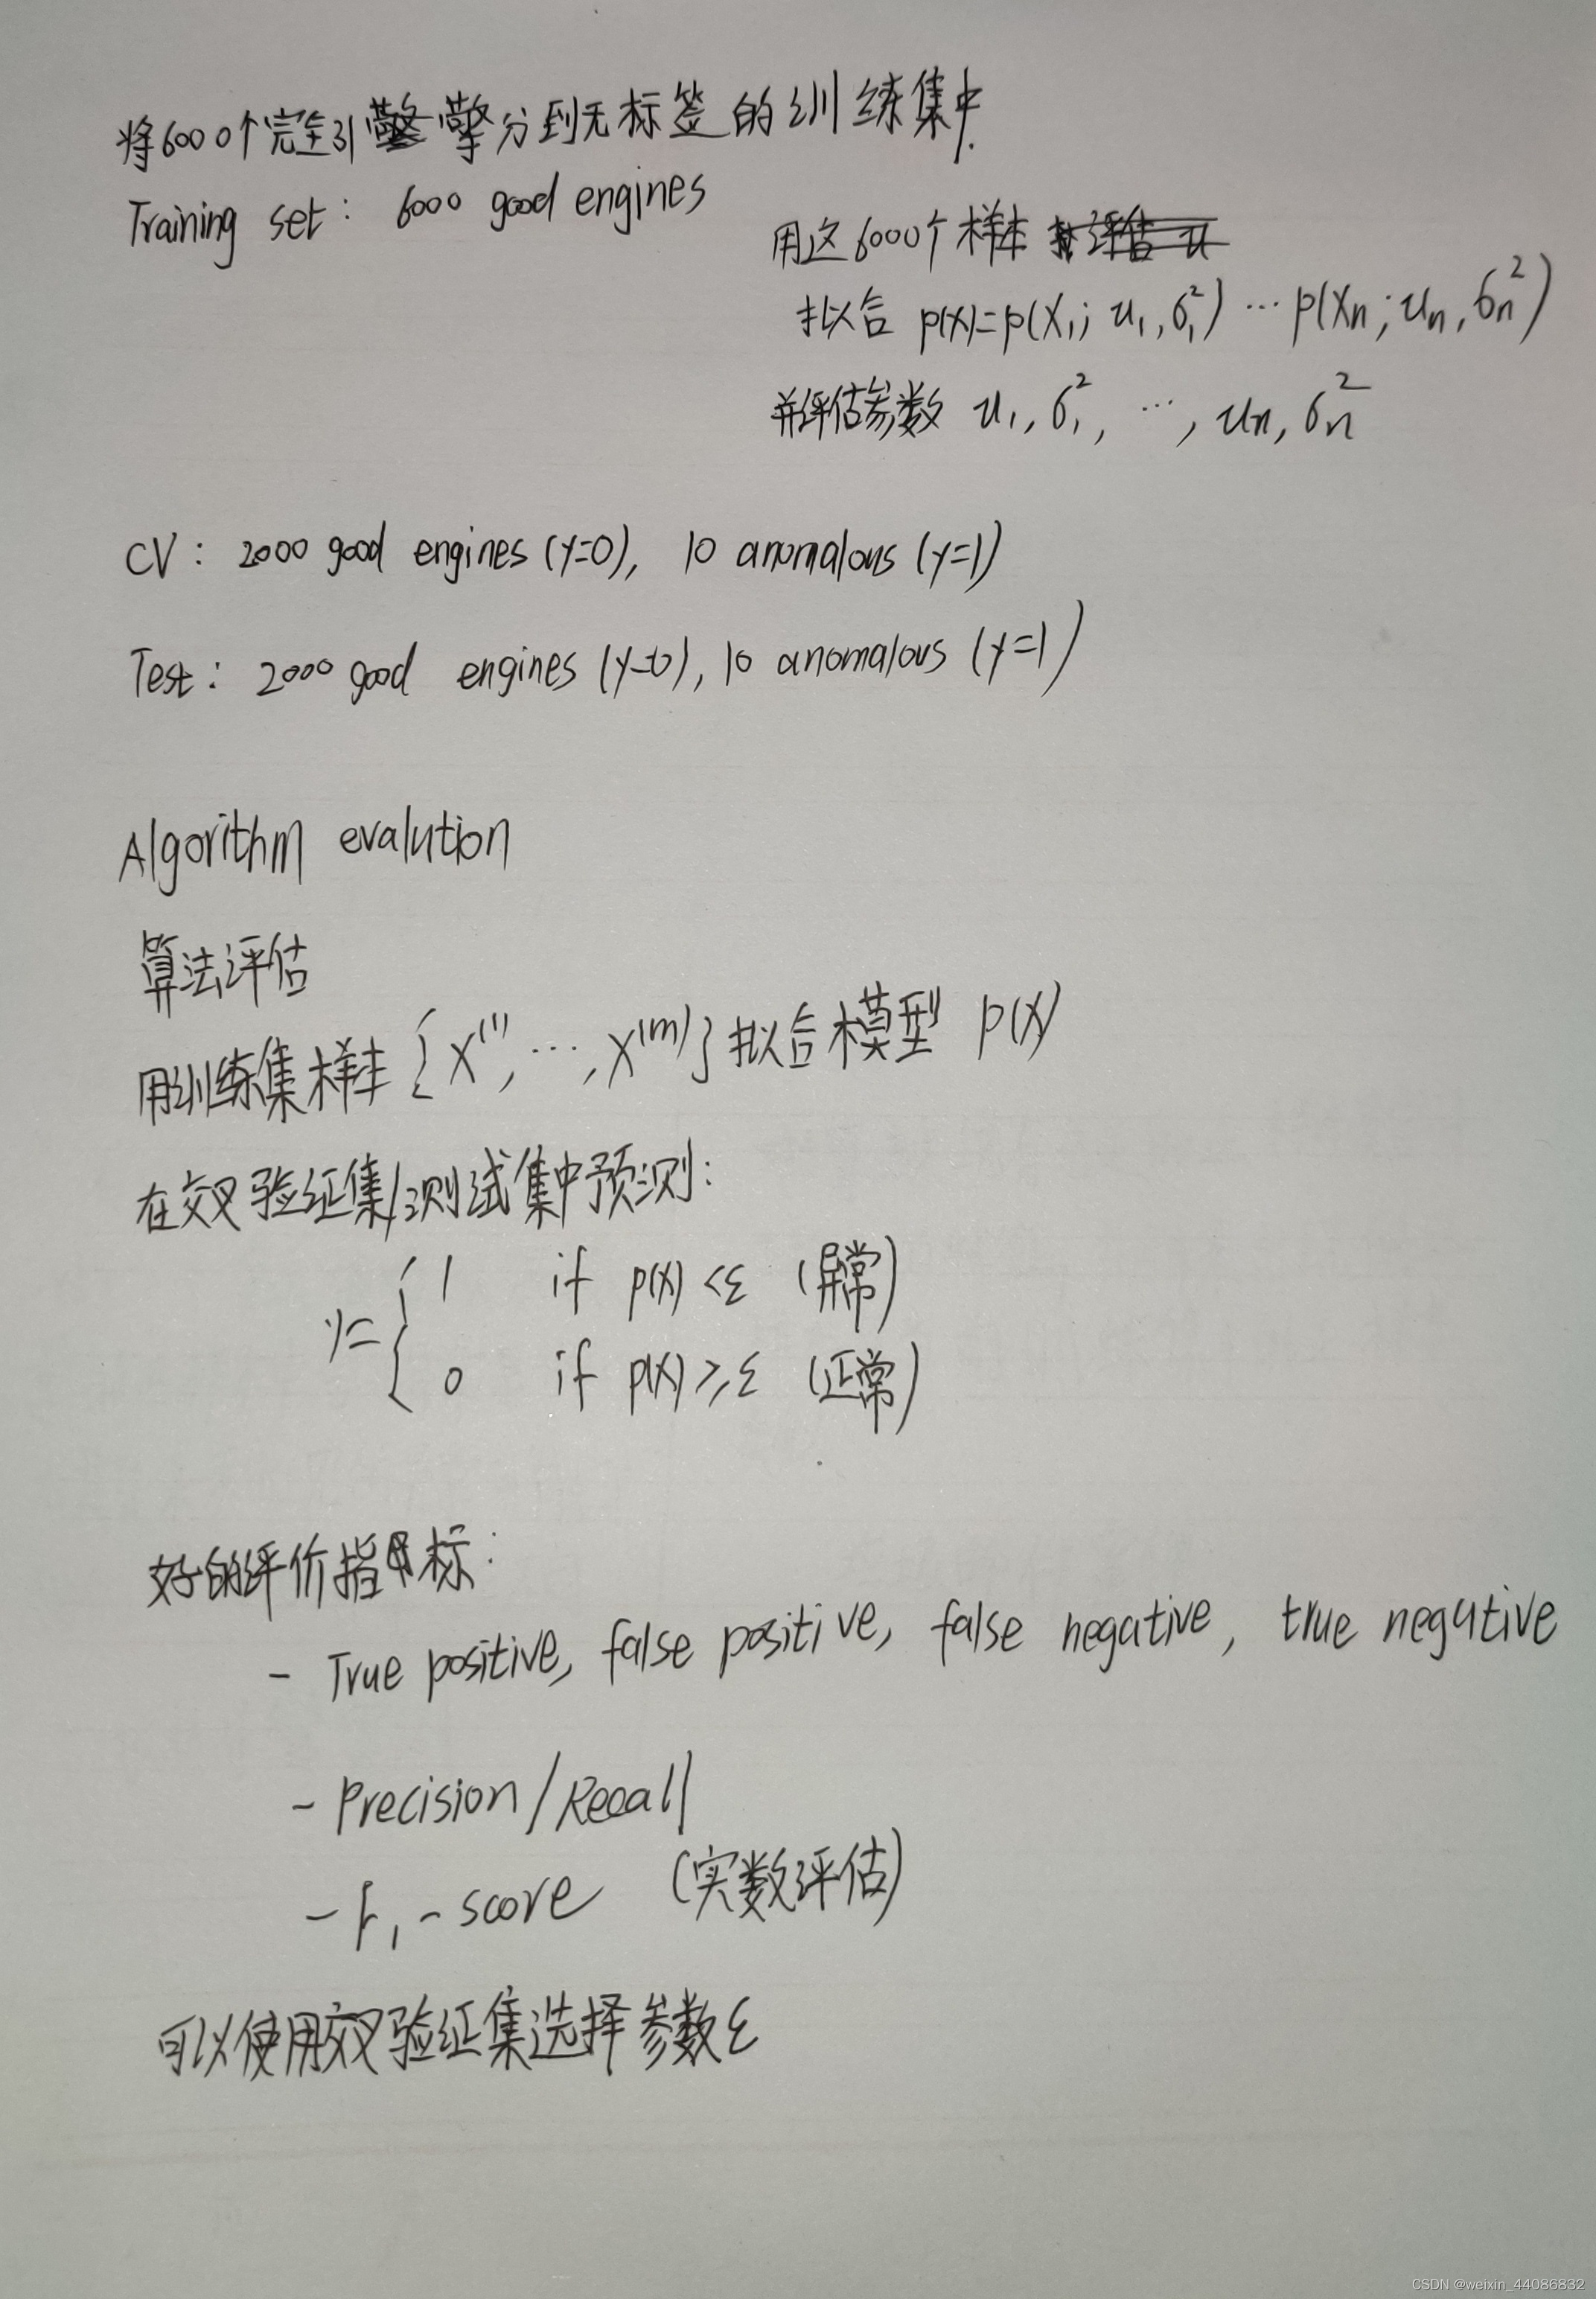 将6000个完全引擎分到无标签的训练集中.
Training set: 6000 good engines
用这6000个样本
拟合 p(x)=p(x₁; u₁, σ₁²) … p(xn; un, σn²)
并评估参数 u₁, σ₁², …, un, σn²
CV: 2000 good engines (y=0), 10 anomalous (y=1)
Test: 2000 good engines (y=0), 10 anomalous (y=1)
Algorithm evalution
算法评估
用训练集样本 {x⁽¹⁾, …, x⁽ᵐ⁾} 拟合模型 p(x)
在交叉验证集/测试集中预测:
y= { 1 if p(x) <ε (异常)
0 if p(x) ≥ε (正常)
好的评价指标:
- True positive, false positive, false negative, true negative
- Precision/Recall
- F₁-score (实数评估)
可以使用交叉验证集选择参数ε
CSDN @weixin_44086832